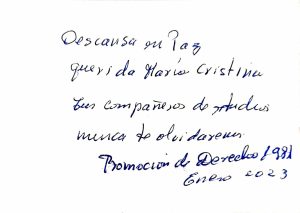 Descansa en Paz
querida María Cristina
tus compañeros de
nunca te olvidaremos
Promoción de Derecho 1981
Enero 2023